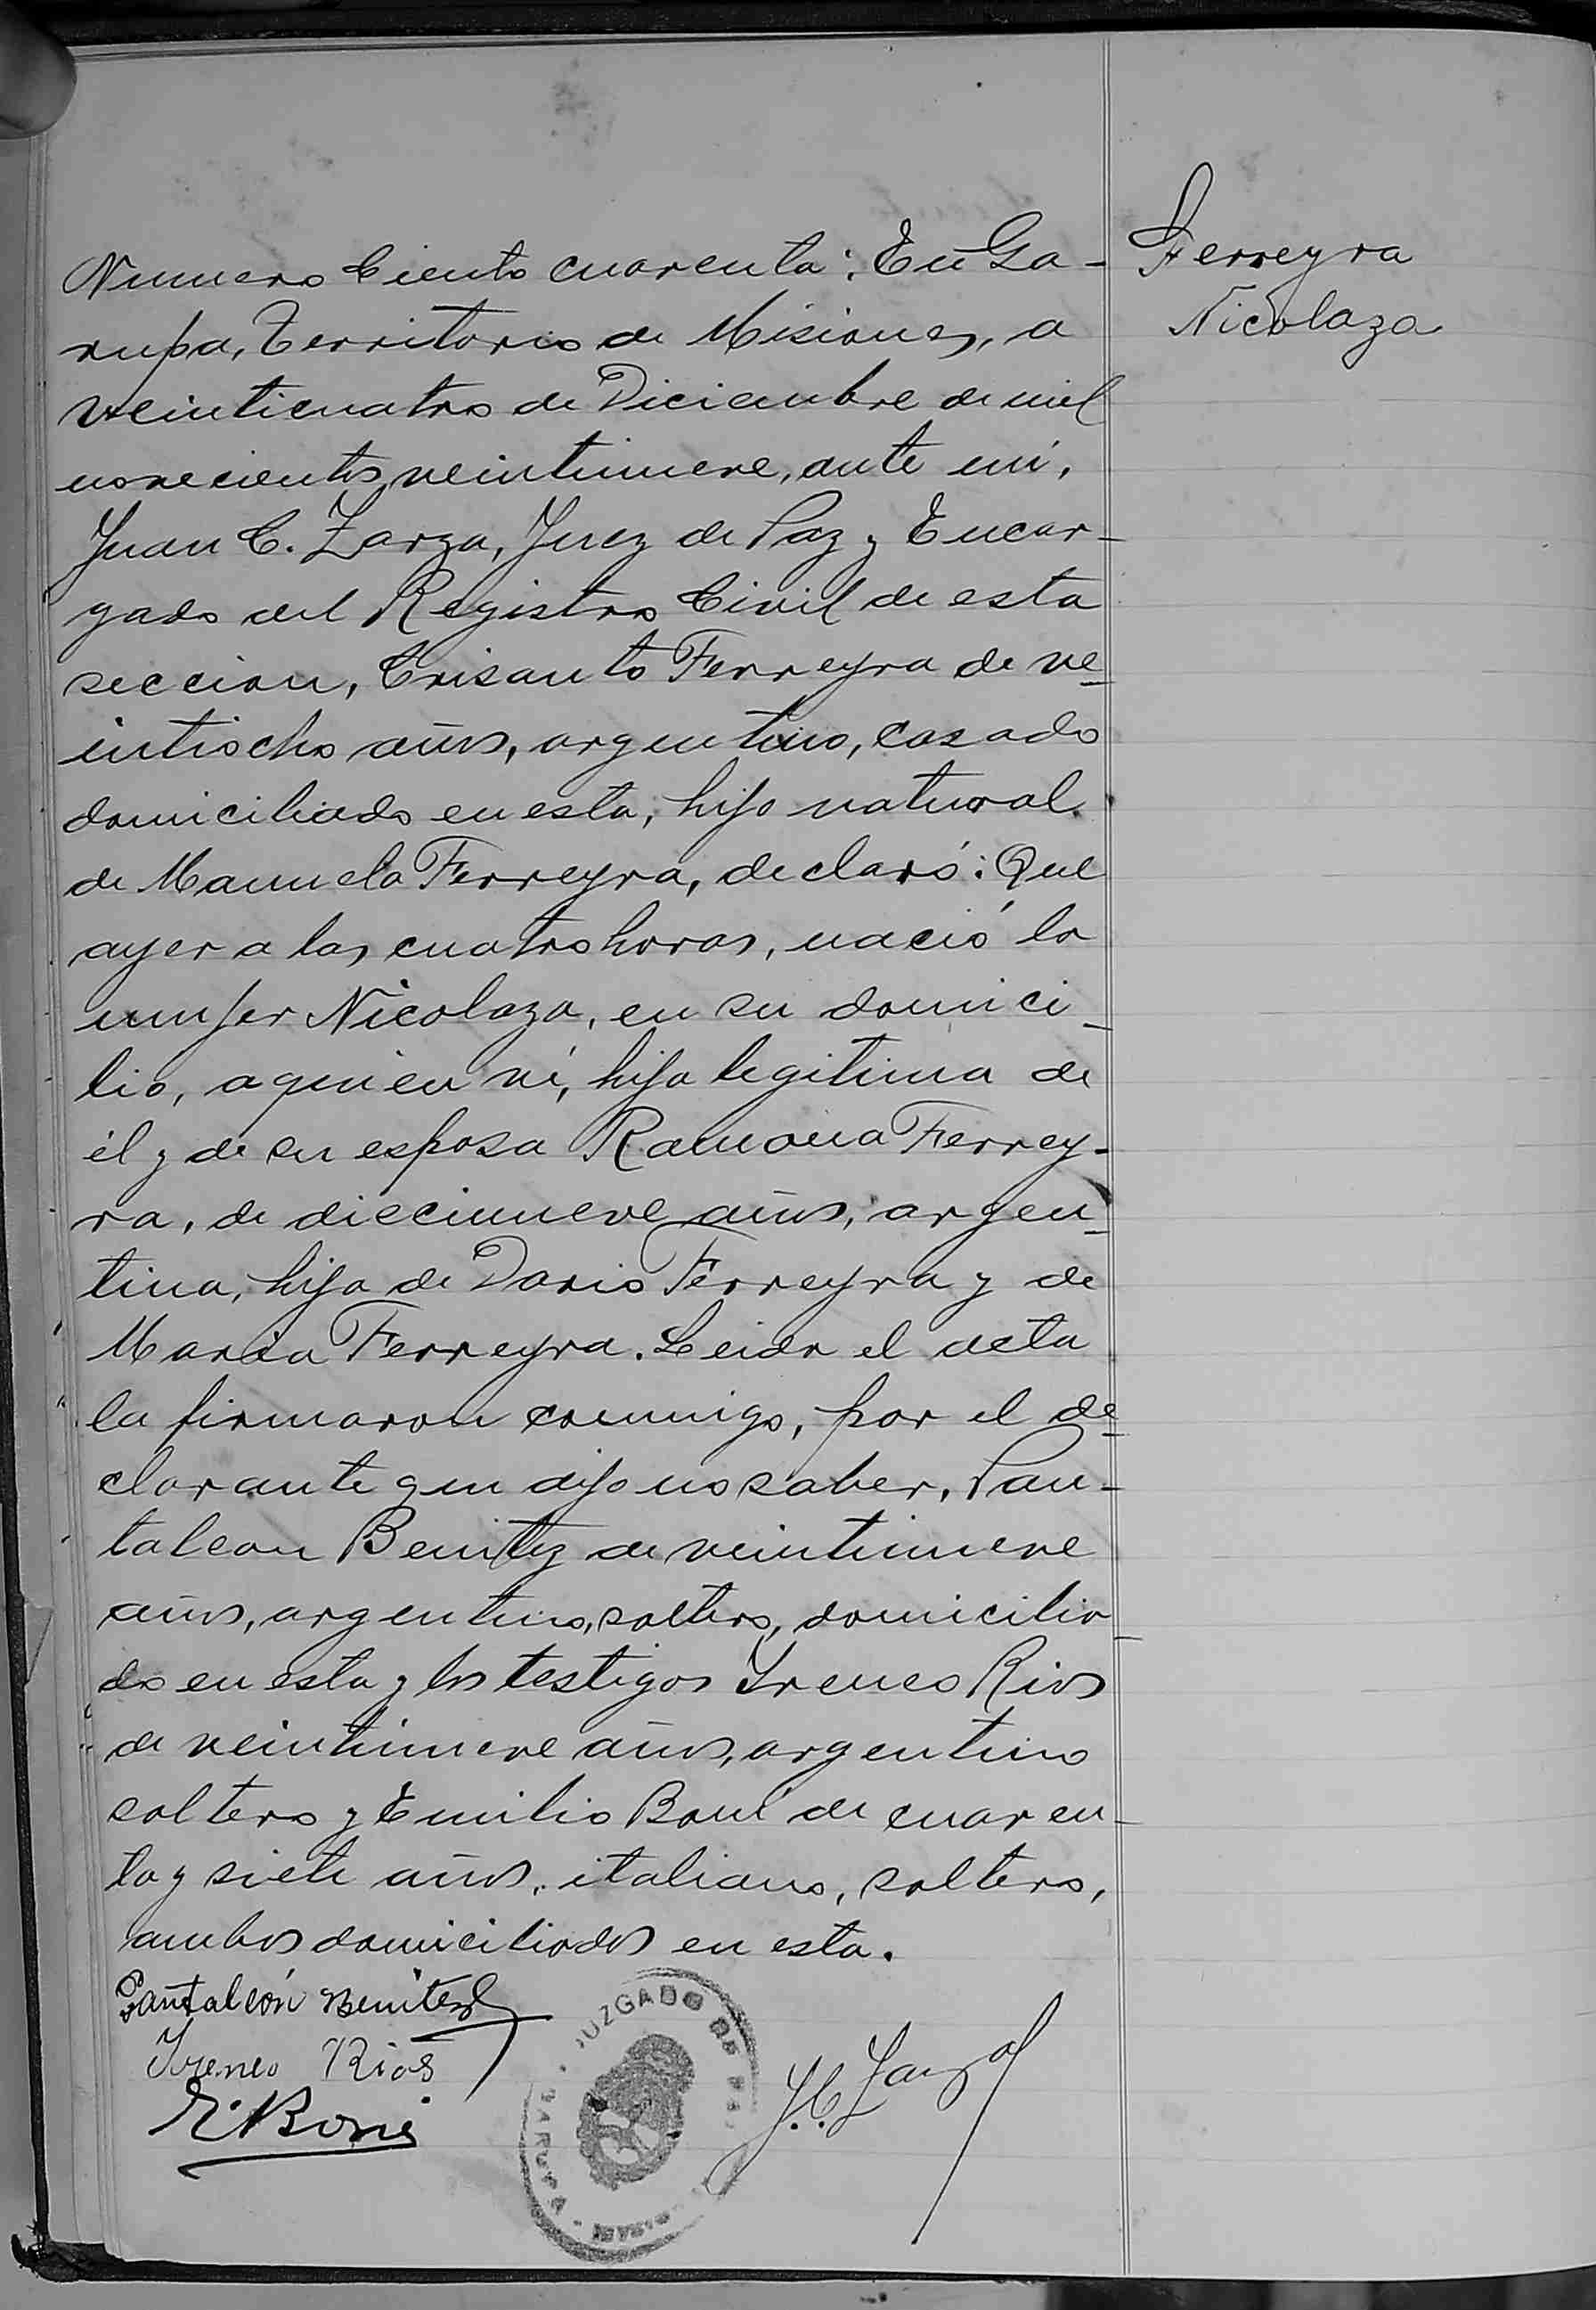 Ferreyra
Nicolaza
Numero Ciento cuarenta: En Ga-
rupa, Territorio de Misiones, a
veinticuatro de Diciembre de mil
novecientos veintinueve, ante mí,
Juan C. Zarza, Juez de Paz y Encar-
gado del Registro Civil de esta
seccion, Crisanto Ferreyra de ve-
intiocho años, argentino, casado
domiciliado en esta, hijo natural
de Manuela Ferreyra, declaró: Que
ayer a las cuatro horas, nació la
mujer Nicolaza, en su domici-
lio, a quien ví, hija legitima de
él y de su esposa Ramona Ferrey-
ra, de diecinueve años, argen-
tina, hija de Dario Ferreyra y de
Maria Ferreyra. Leida el acta
la firmaron conmigo, por el de-
clarante que dijo no saber, Pan-
taleon Benitez de veintinueve
años, argentino, soltero, domicilia-
do en esta y los testigos Yreneo Rios
de veintinueve años, argentino
soltero y Emilio Boni de cuaren-
ta y siete años, italiano, soltero,
ambos domiciliados en esta.
Pantaleón Benitez
Yreneo Rios
E. Boni
J. C. Zarza
JUZGADO DE PAZ
GARUPA